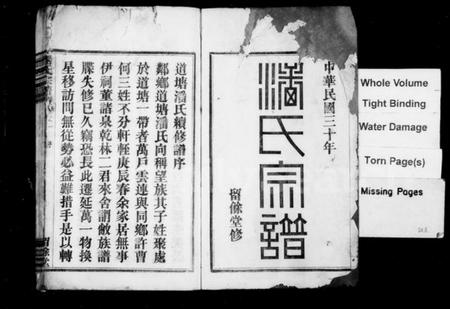 中華民國三十年
潘氏宗譜
留餘堂修
道塘潘氏續修譜序
鄰鄉道塘潘氏向稱望族其子姓聚處
於道塘一帶者萬戶雲連與同鄉許曹
何三姓不分軒輊庚辰春余家居無事
伊祠董諸泉乾林二君來舍謂敝族譜
牒失修已久竊恐長此遷延萬一物換
星移訪問無從勢必益難措手是以轉
Whole Volume
Tight Binding
Water Damage
Torn Page(s)
Missing Pages